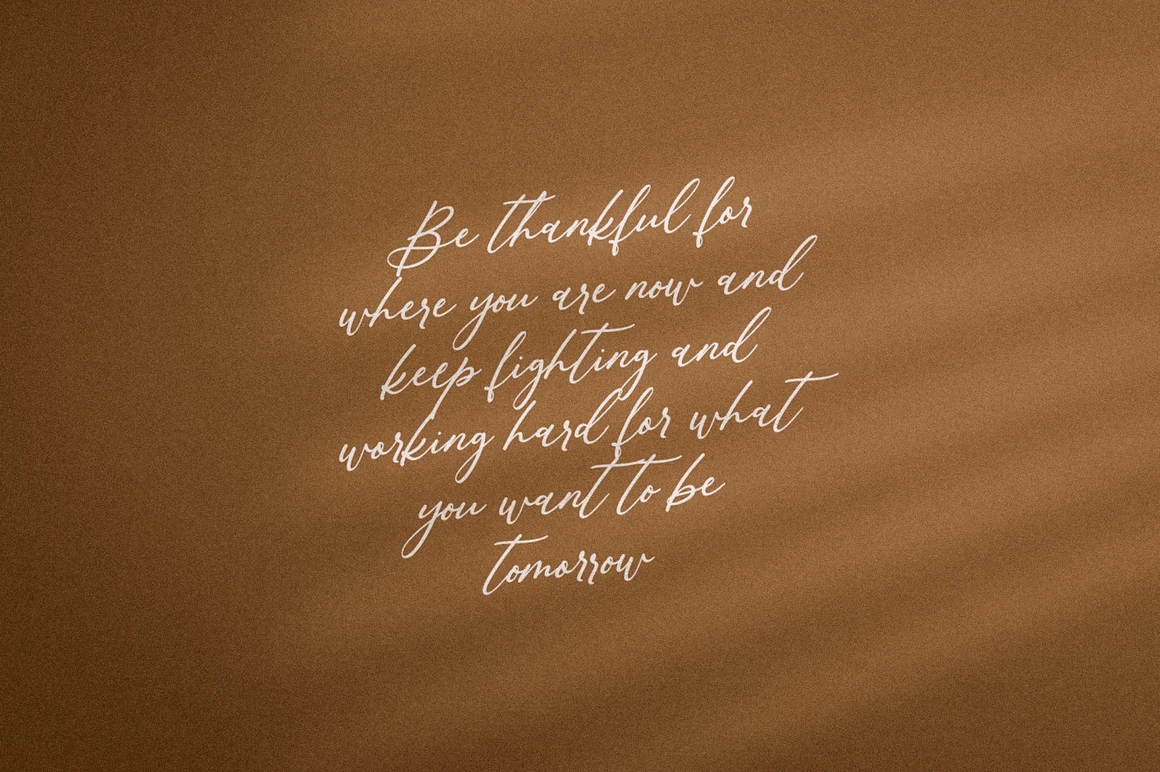 Be thankful for
where you are now and
keep fighting and
working hard for what
you want to be
tomorrow